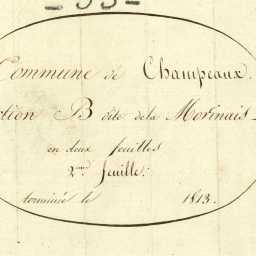 Commune de Champeaux.
ction B dite de la Morinais
en deux feuilles
2.me feuille.
terminée le 1813.